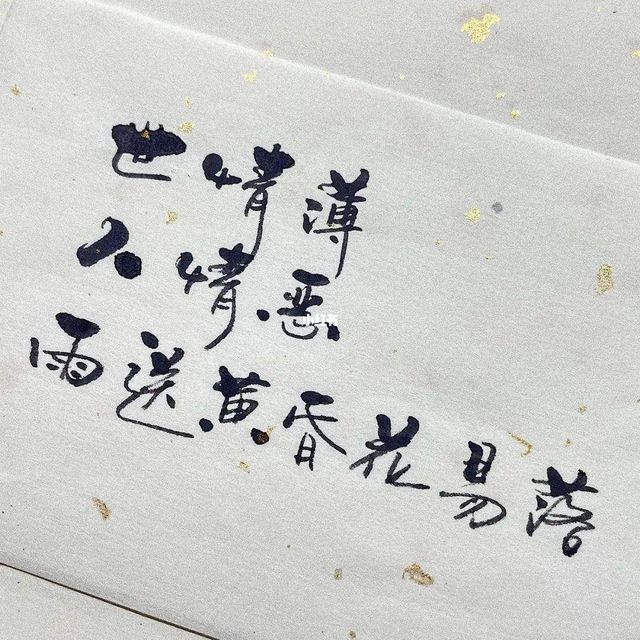 世情薄
人情恶
雨送黄昏花易落
小红书